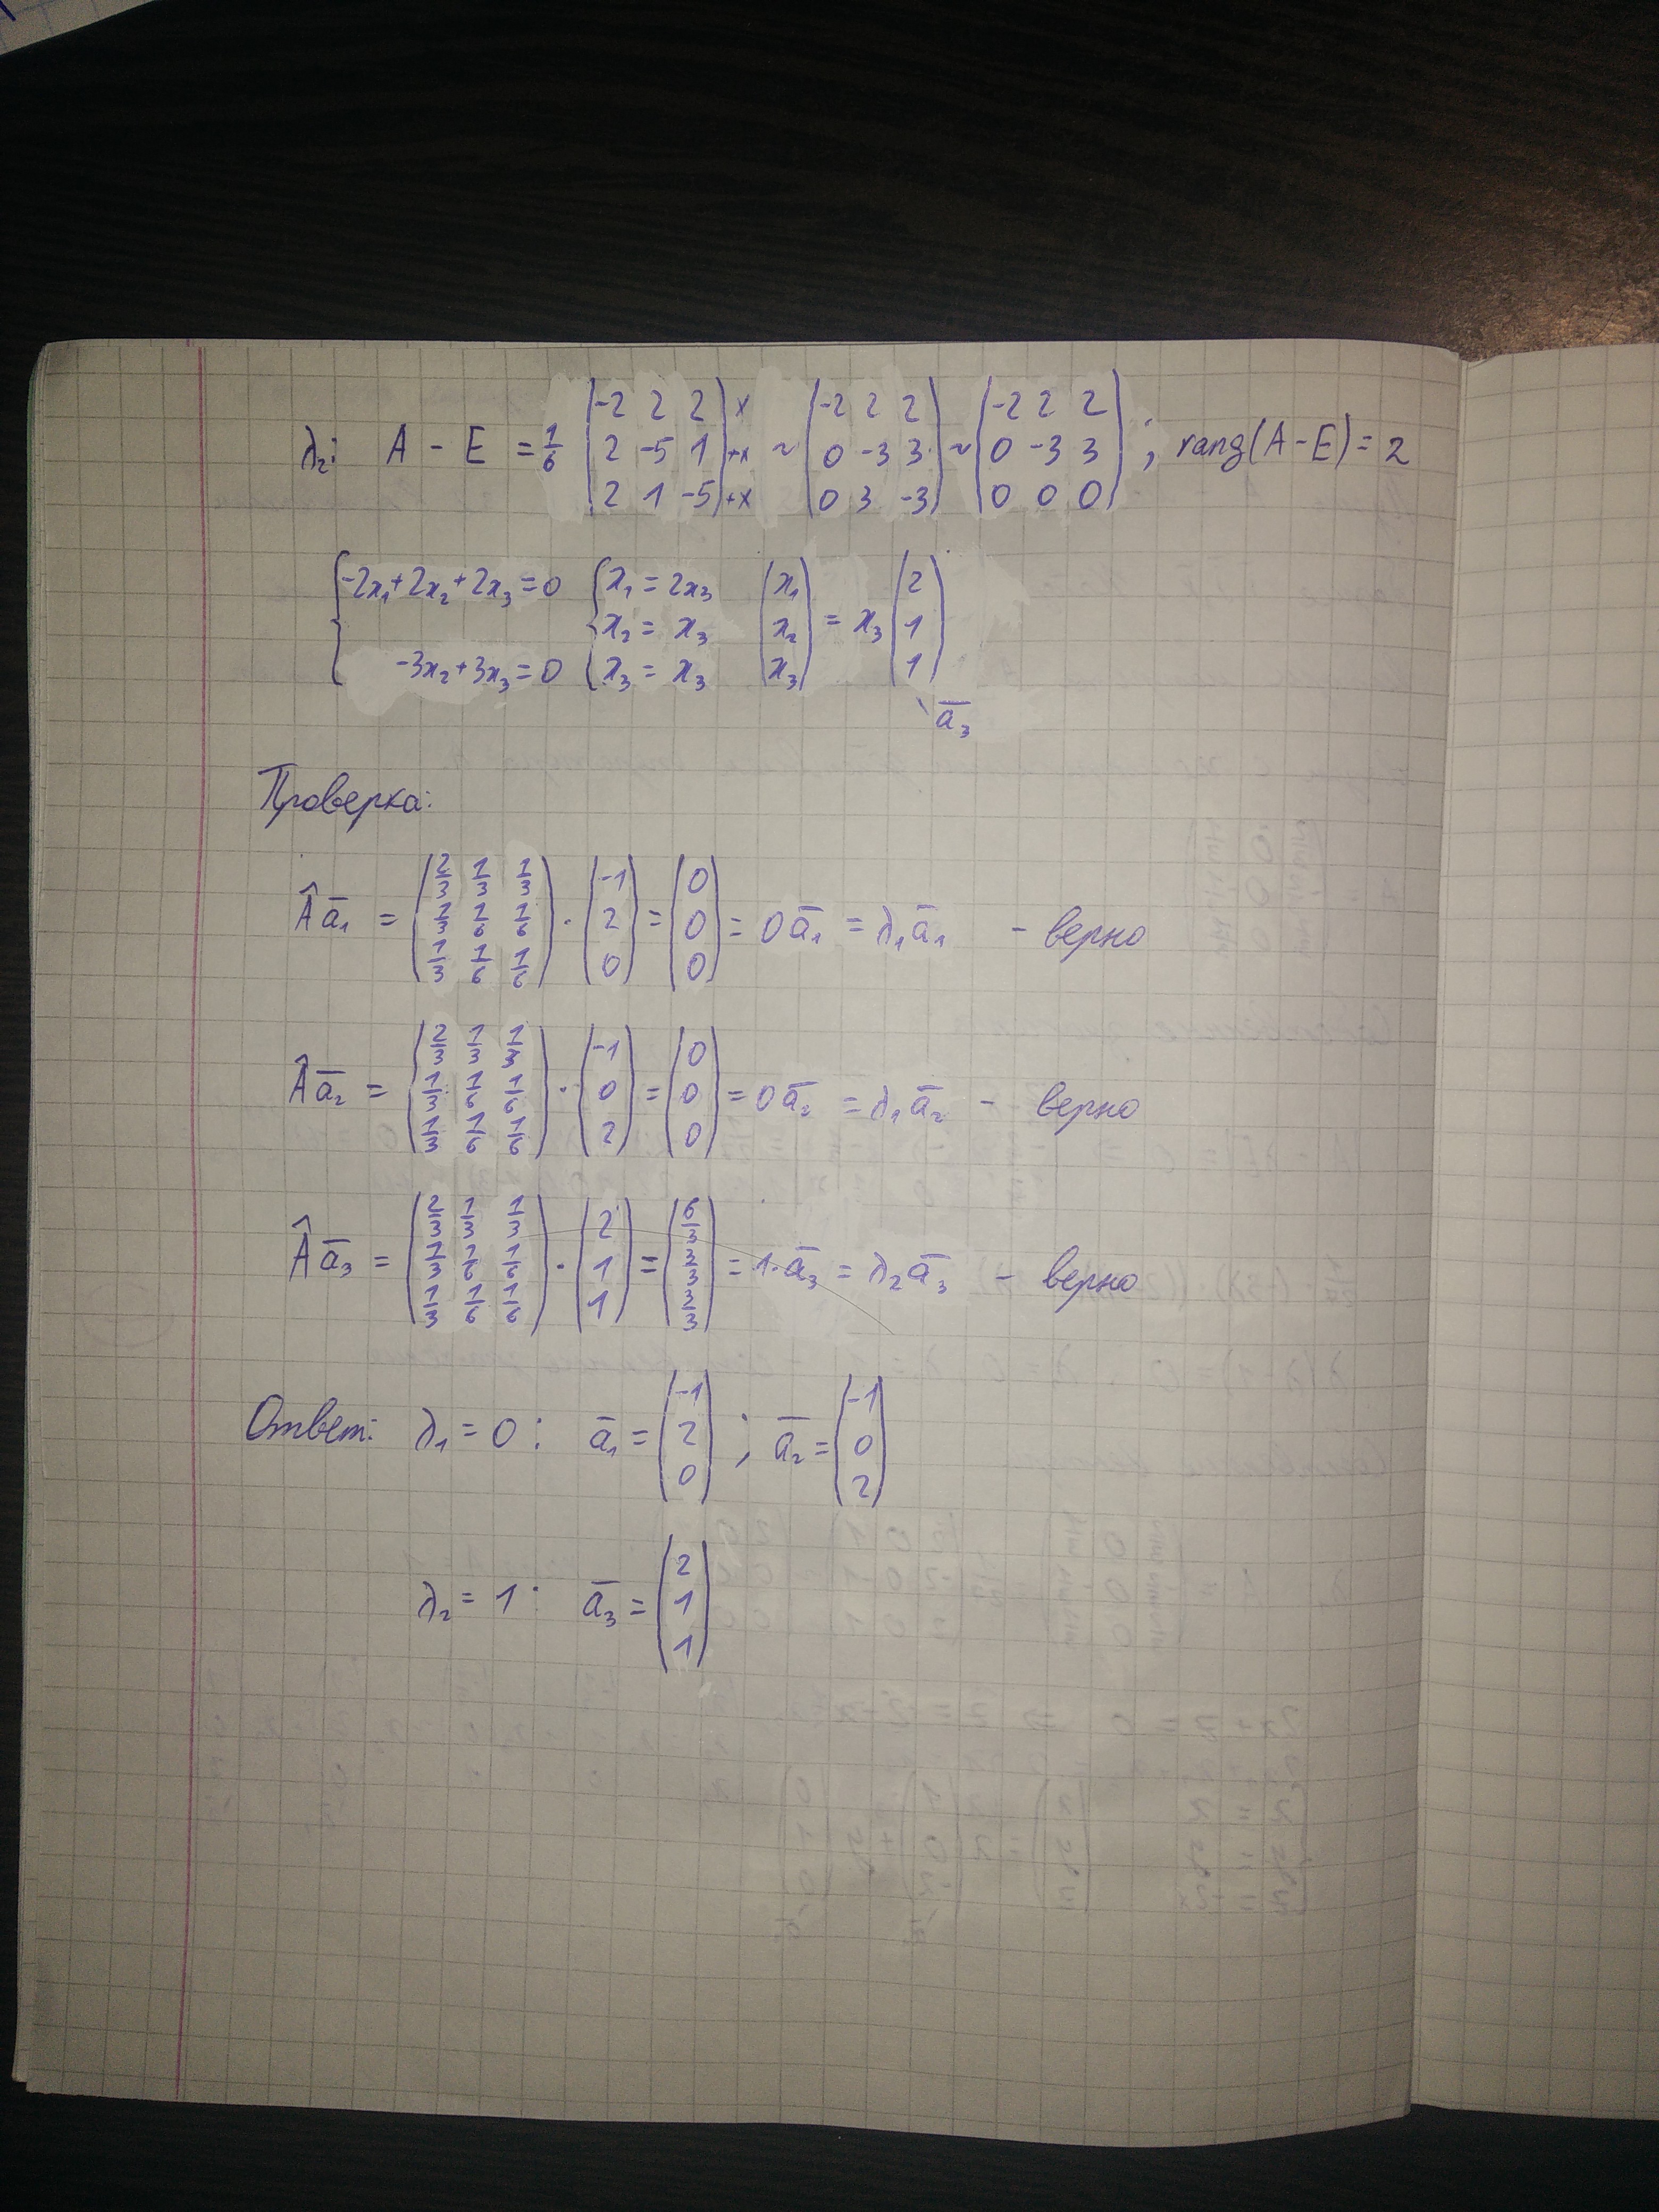 λ₂: A - E = 1/6 (-2 2 2; 2 -5 1; 2 1 -5) x +x +x ~ (-2 2 2; 0 -3 3; 0 3 -3) ~ (-2 2 2; 0 -3 3; 0 0 0); rang(A-E)=2
{-2x₁+2x₂+2x₃=0; -3x₂+3x₃=0 {x₁=2x₃; x₂=x₃; x₃=x₃ (x₁; x₂; x₃) = x₃ (2; 1; 1)
a̅₃
Проверка:
Âa̅₁ = (2/3 1/3 1/3; 1/3 1/6 1/6; 1/3 1/6 1/6) · (-1; 2; 0) = (0; 0; 0) = 0a̅₁ = λ₁a̅₁ - верно
Âa̅₂ = (2/3 1/3 1/3; 1/3 1/6 1/6; 1/3 1/6 1/6) · (-1; 0; 2) = (0; 0; 0) = 0a̅₂ = λ₁a̅₂ - верно
Âa̅₃ = (2/3 1/3 1/3; 1/3 1/6 1/6; 1/3 1/6 1/6) · (2; 1; 1) = (6/3; 3/3; 3/3) = 1·a̅₃ = λ₂a̅₃ - верно
Ответ: λ₁=0: a̅₁=(-1; 2; 0); a̅₂=(-1; 0; 2)
λ₂=1: a̅₃=(2; 1; 1)